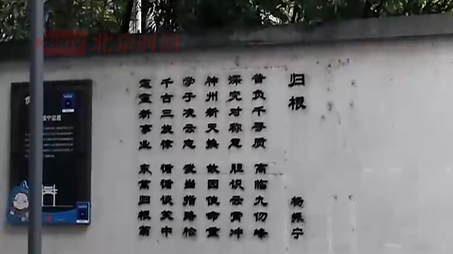 归根 杨振宁
昔负千寻质 高临九仞峰
深究对称意 胆识云霄冲
神州新天换 故园使命重
学子凌云志 我当指路松
千古三旋律 循循谈笑中
耄耋新事业 东篱归根翁
北京时间